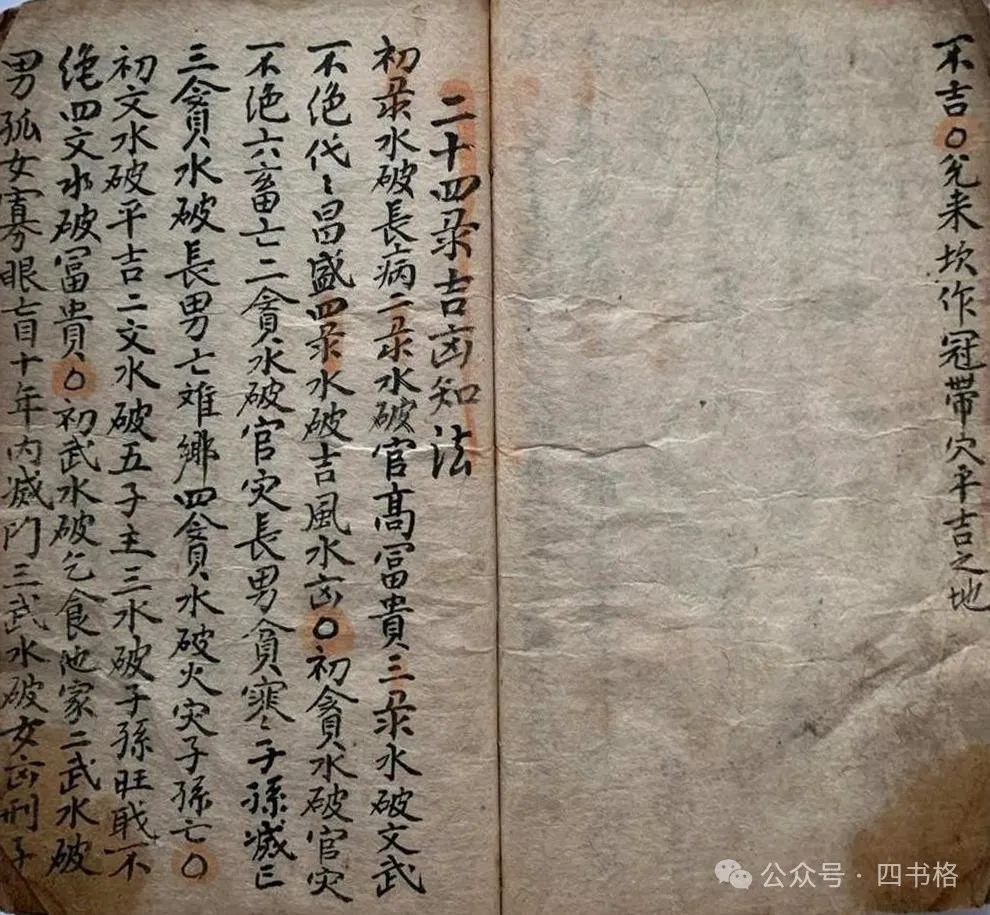 不吉○兌来坎作冠帶穴平吉之地
二十四录吉凶知法
初录水破長病二录水破官髙冨貴三录水破文武
不绝代〻昌盛四录水破吉風水凶○初貪水破官灾
不绝六畜亡二貪水破官灾長男貧寒〻子孫滅亡
三貪水破長男亡难鄉四貪水破火灾子孫亡○
初文水破平吉二文水破五子主三水破子孫旺戝不
绝四文水破冨貴○初武水破乞食他家二武水破
男孤女寡眼盲十年内滅门三武水破女凶刑子
公众号·四书格